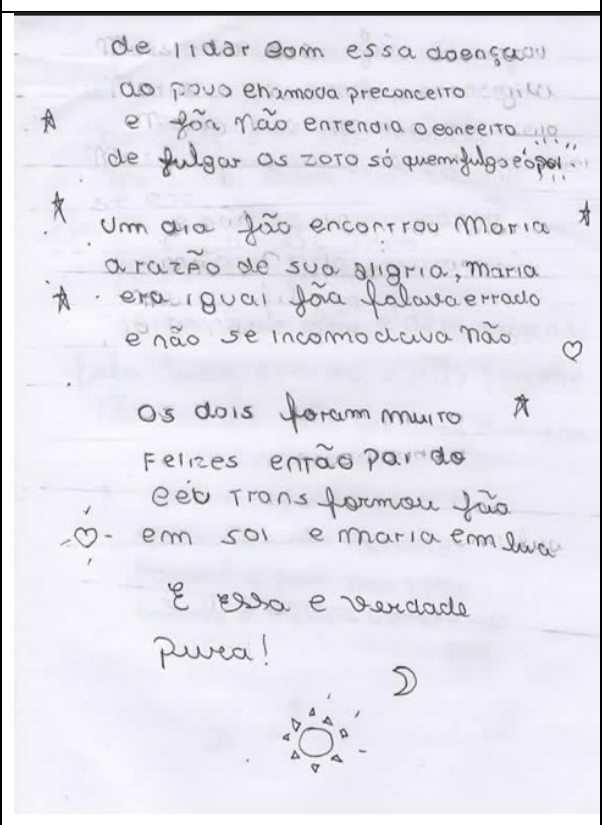 de lidar com essa doença
ao povo chamova preconceito
e João não entendia o conceito
de julgar os zoto só quem julga é o pai
Um dia João encontrou Maria
a razão de sua aligria, Maria
era igual João falava errado
e não se incomodava não
os dois foram muito
Felizes então pai do
ceú Transformou João
em sol e maria em lua
E essa e verdade
pura!